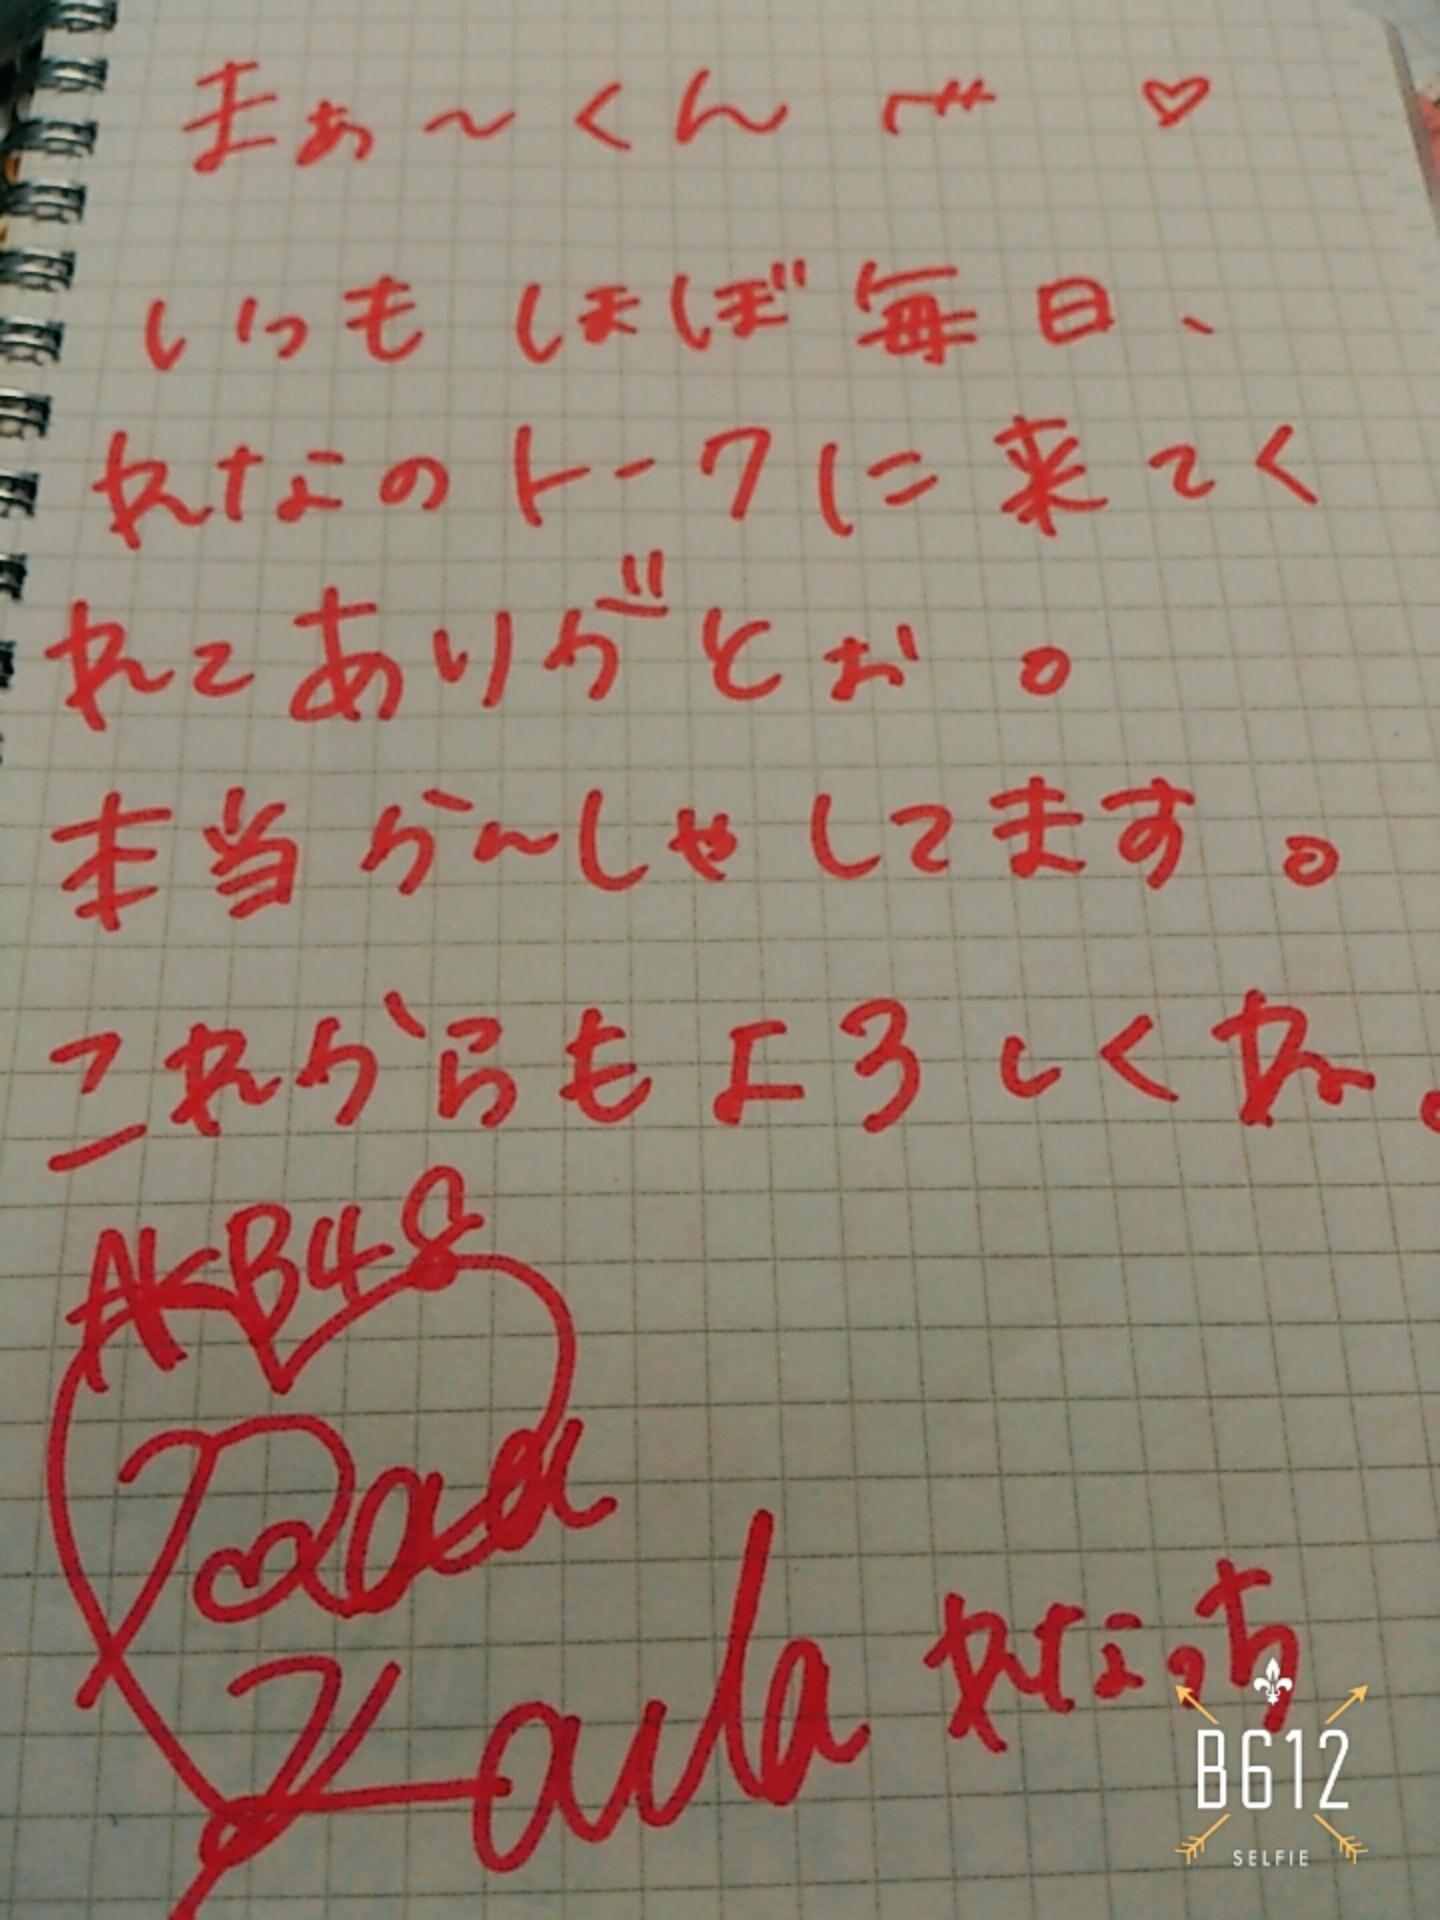 まぁ〜くん へ ♡
いつもほぼ毎日、
れなのトークに来てく
れてありがとぉ。
本当かんしゃしてます。
これからもよろしくね。
AKB48
れなっち
B612
SELFIE